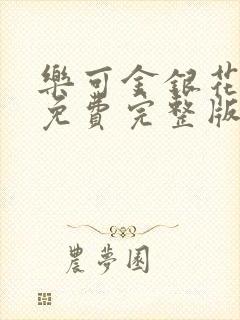 樂可金銀花
免費完整版
農夢園